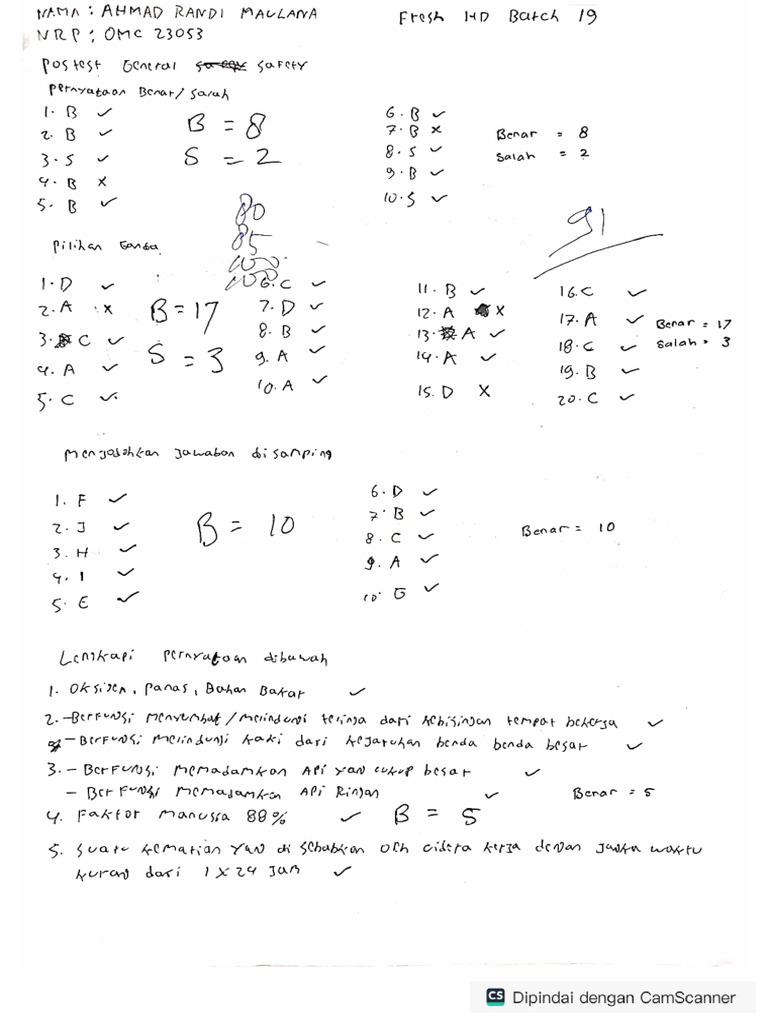 NAMA : AHMAD RANDI MAULANA
Fresh HD Batch 19
NRP : OMC 23053
Postest General Safety
Pernyataan Benar/salah
1. B ✓
2. B ✓
3. S ✓
4. B x
5. B ✓
B = 8
S = 2
6. B ✓
7. B x
8. S ✓
9. B ✓
10. S ✓
Benar = 8
Salah = 2
80
85
100
100
91
Pilihan Ganda
1. D ✓
2. A x
3. C ✓
4. A ✓
5. C ✓
B = 17
S = 3
6. C ✓
7. D ✓
8. B ✓
9. A ✓
10. A ✓
11. B ✓
12. A x
13. A ✓
14. A ✓
15. D x
16. C ✓
17. A ✓
18. C ✓
19. B ✓
20. C ✓
Benar = 17
Salah = 3
Menjodohkan Jawaban disamping
1. F ✓
2. J ✓
3. H ✓
4. I ✓
5. E ✓
B = 10
6. D ✓
7. B ✓
8. C ✓
9. A ✓
10. G ✓
Benar = 10
Lengkapi pernyataan dibawah
1. Oksigen, Panas, Bahan Bakar ✓
2. - Berfungsi menyumbat/melindungi telinga dari kebisingan tempat bekerja ✓
- Berfungsi melindungi kaki dari kejatuhan benda benda besar ✓
3. - Berfungsi memadamkan api yan cukup besar ✓
- Berfungsi memadamkan api Ringan ✓
Benar = 5
4. Faktor manusia 88% ✓
B = 5
5. Suatu kematian yan di sebabkan oleh cidera kerja dengan jangka waktu
kurang dari 1 x 24 jam ✓
CS Dipindai dengan CamScanner